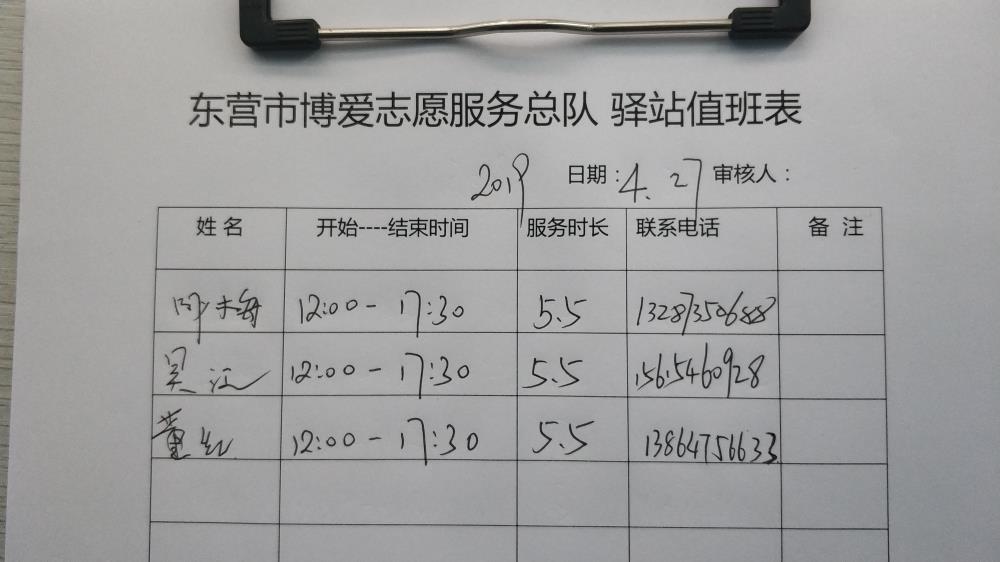 东营市博爱志愿服务总队 驿站值班表
2019 日期:4.27 审核人:
姓名 开始----结束时间 服务时长 联系电话 备 注
12:00-17:30 5.5
吴江 12:00-17:30 5.5
董红 12:00-17:30 5.5 13864756633